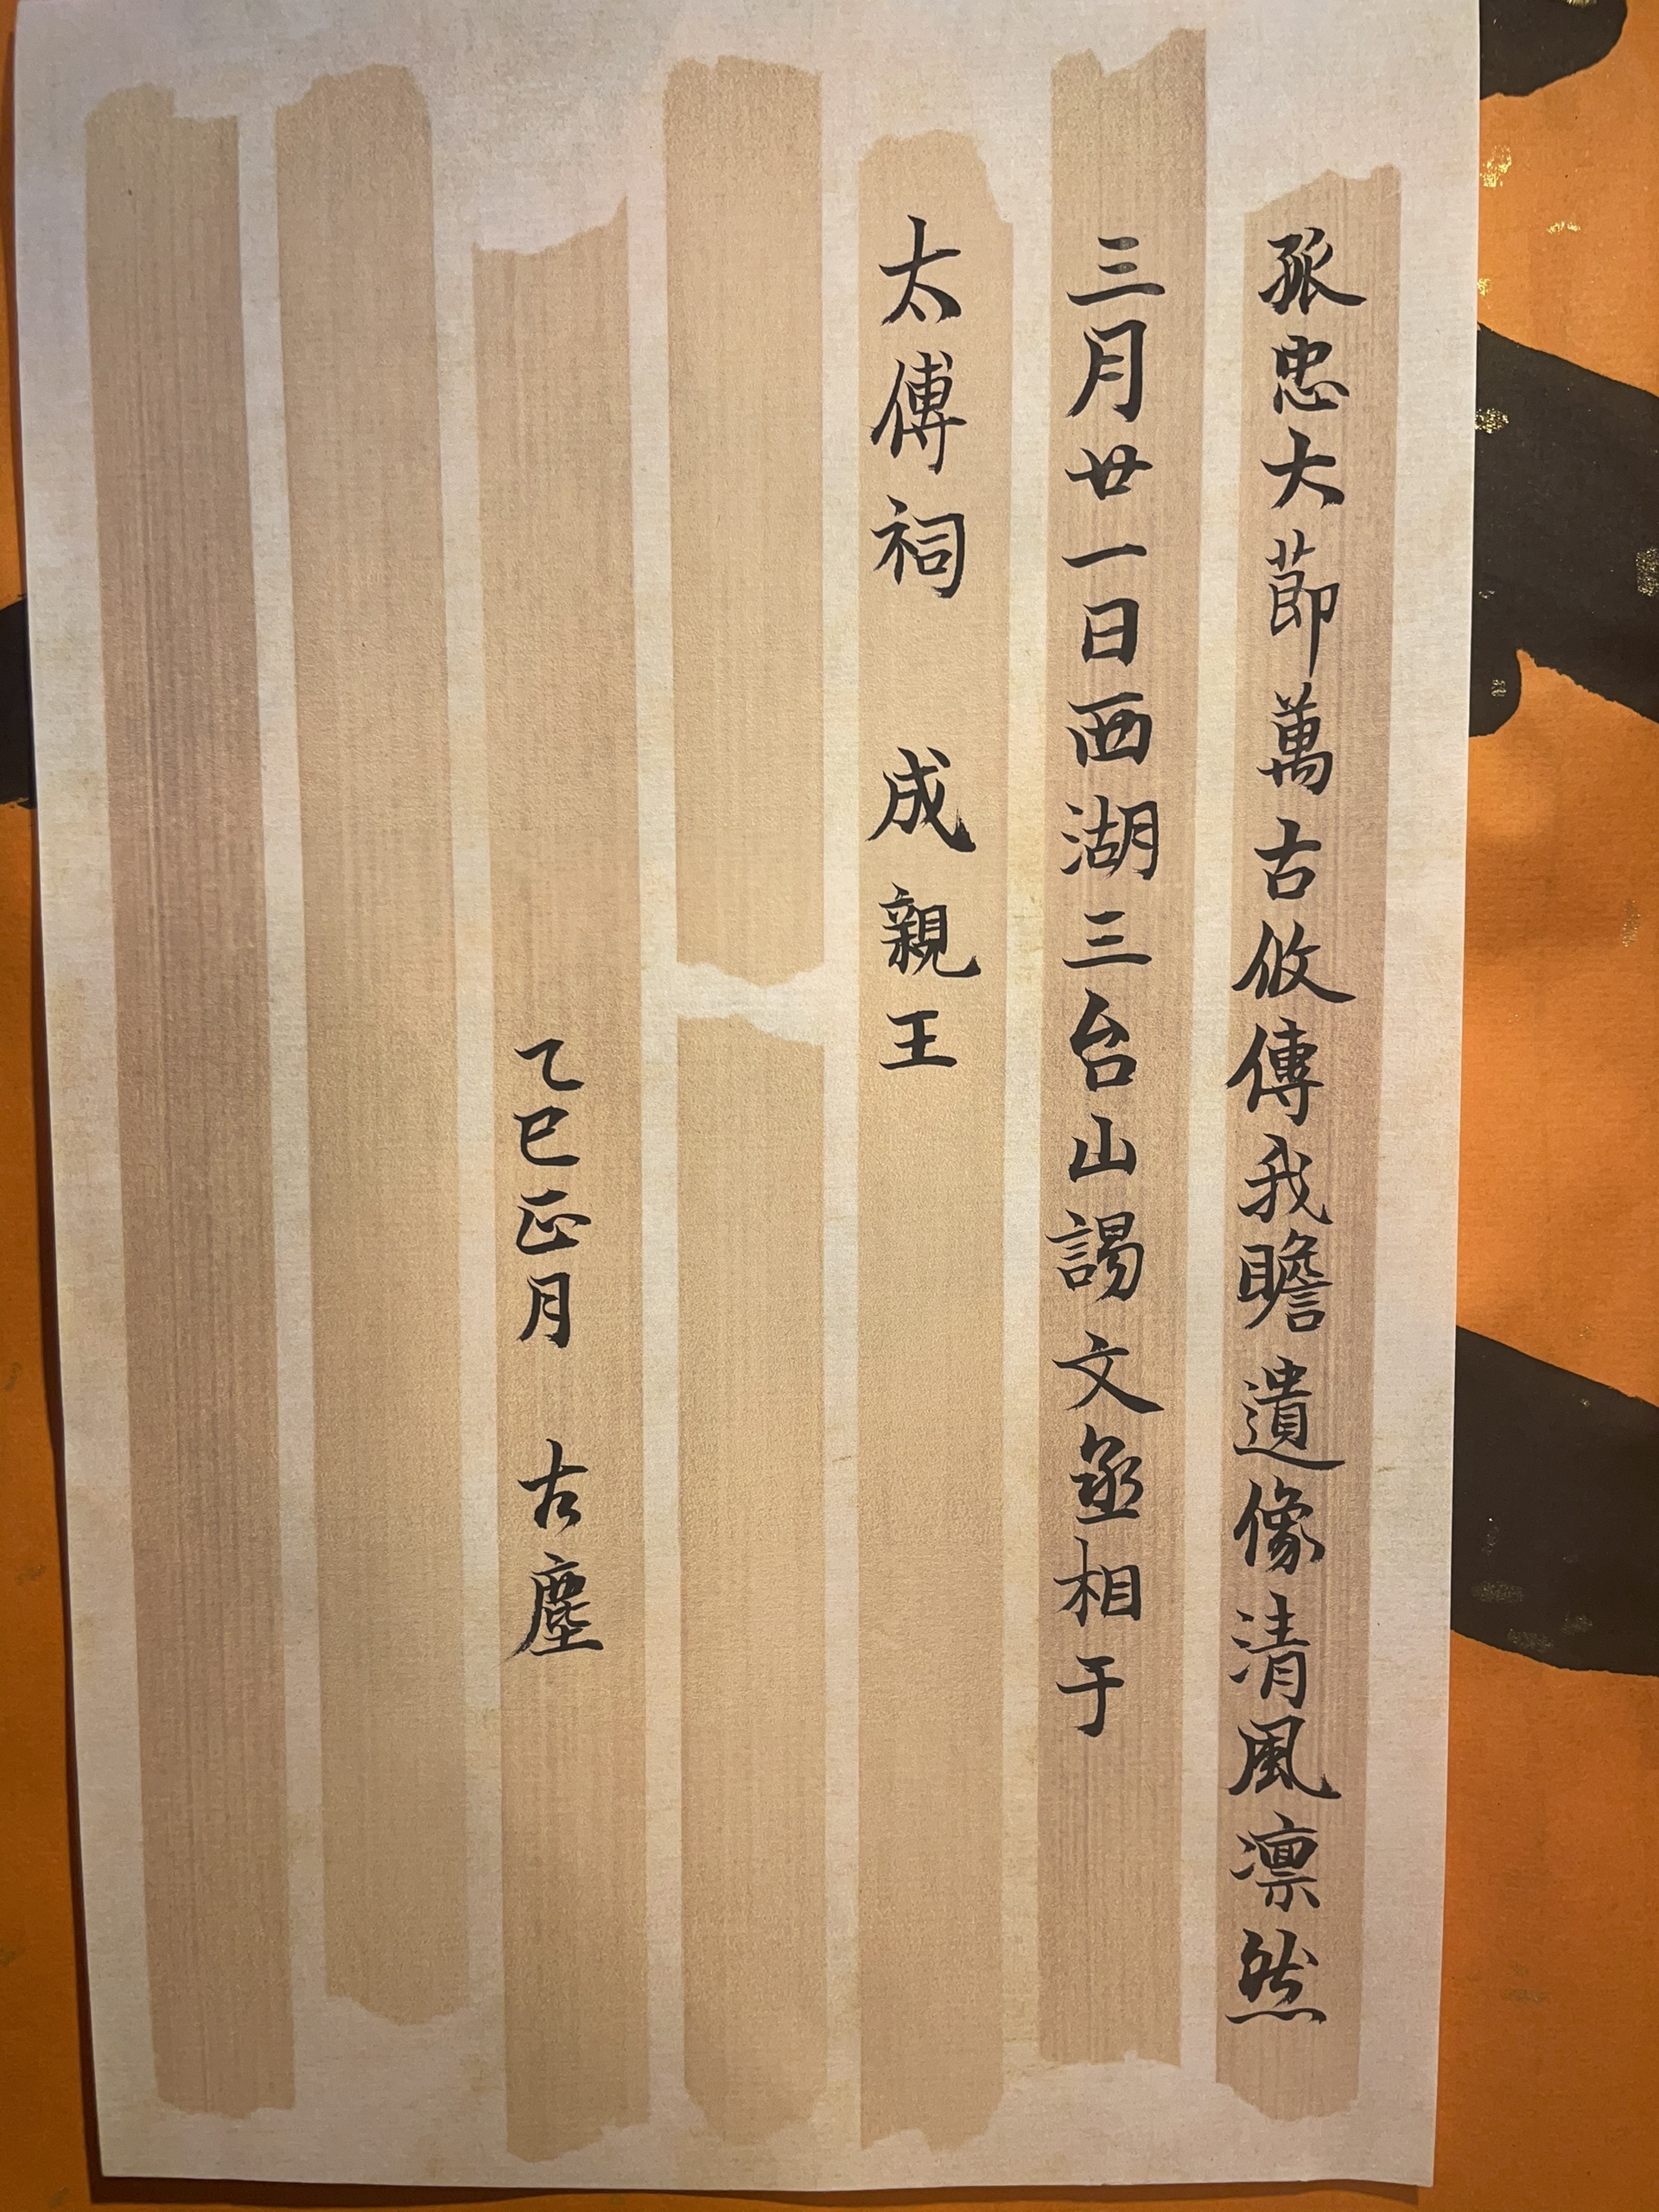 孤忠大節萬古攸傳我瞻遺像清風凛然
三月廿一日西湖三台山謁文丞相于
太傅祠 成親王
乙巳正月 古塵